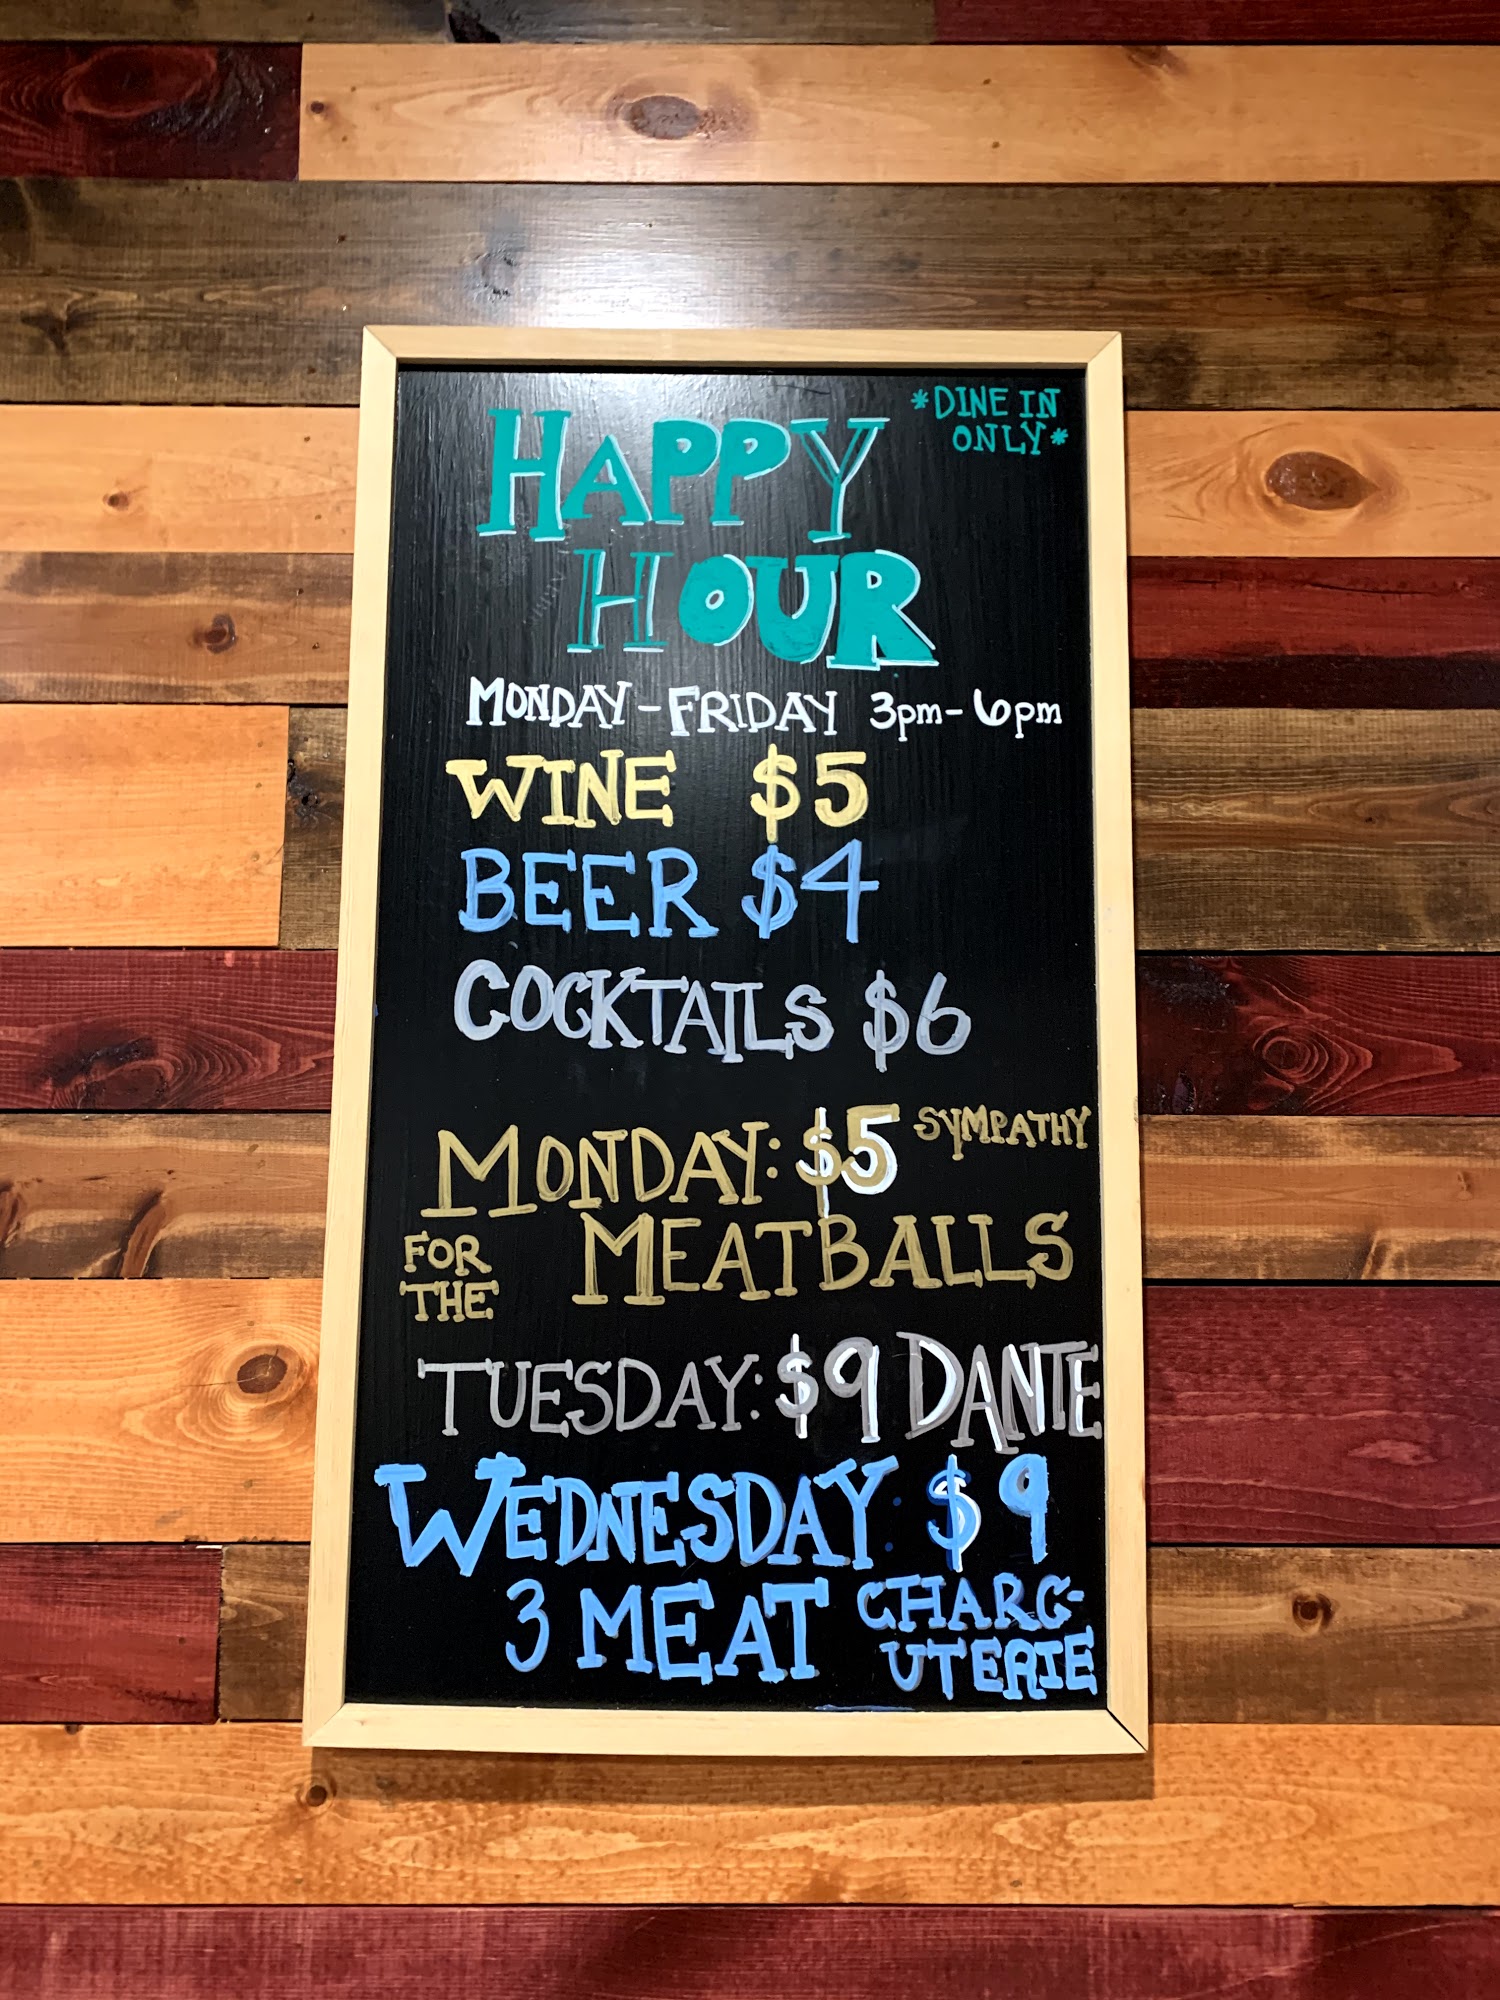 *DINE IN
ONLY*
HAPPY
HOUR
MONDAY-FRIDAY 3pm-6pm
WINE $5
BEER $4
COCKTAILS $6
MONDAY: $5 SYMPATHY
FOR THE MEATBALLS
TUESDAY: $9 DANTE
WEDNESDAY: $9
3 MEAT CHARC-
UTERIE